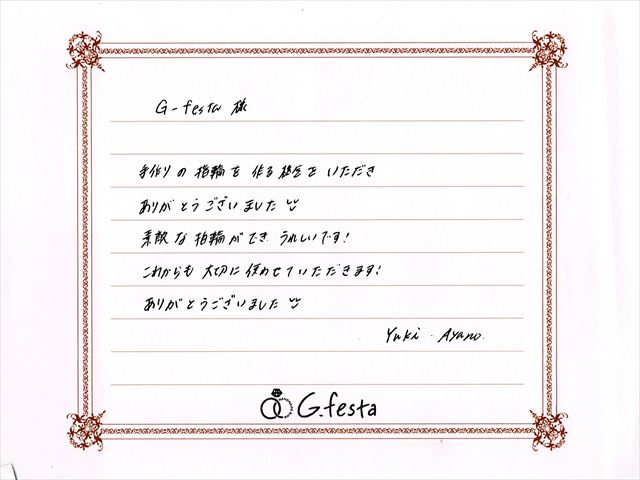 G-festa 様
手作りの指輪を作る機会をいただき
ありがとうございました
素敵な指輪ができ うれしいです!
これからも大切に使わせていただきます!
ありがとうございました
Yuki . Ayano.
G.festa